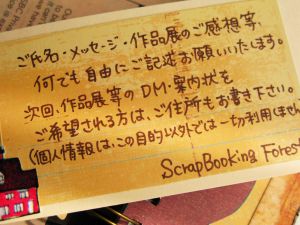 ご氏名・メッセージ・作品展のご感想等、
何でも自由にご記述お願いいたします。
次回、作品展等のDM・案内状を
ご希望される方は、ご住所もお書き下さい。
(個人情報は、この目的以外では一切利用しませ
ScrapBooking Forest